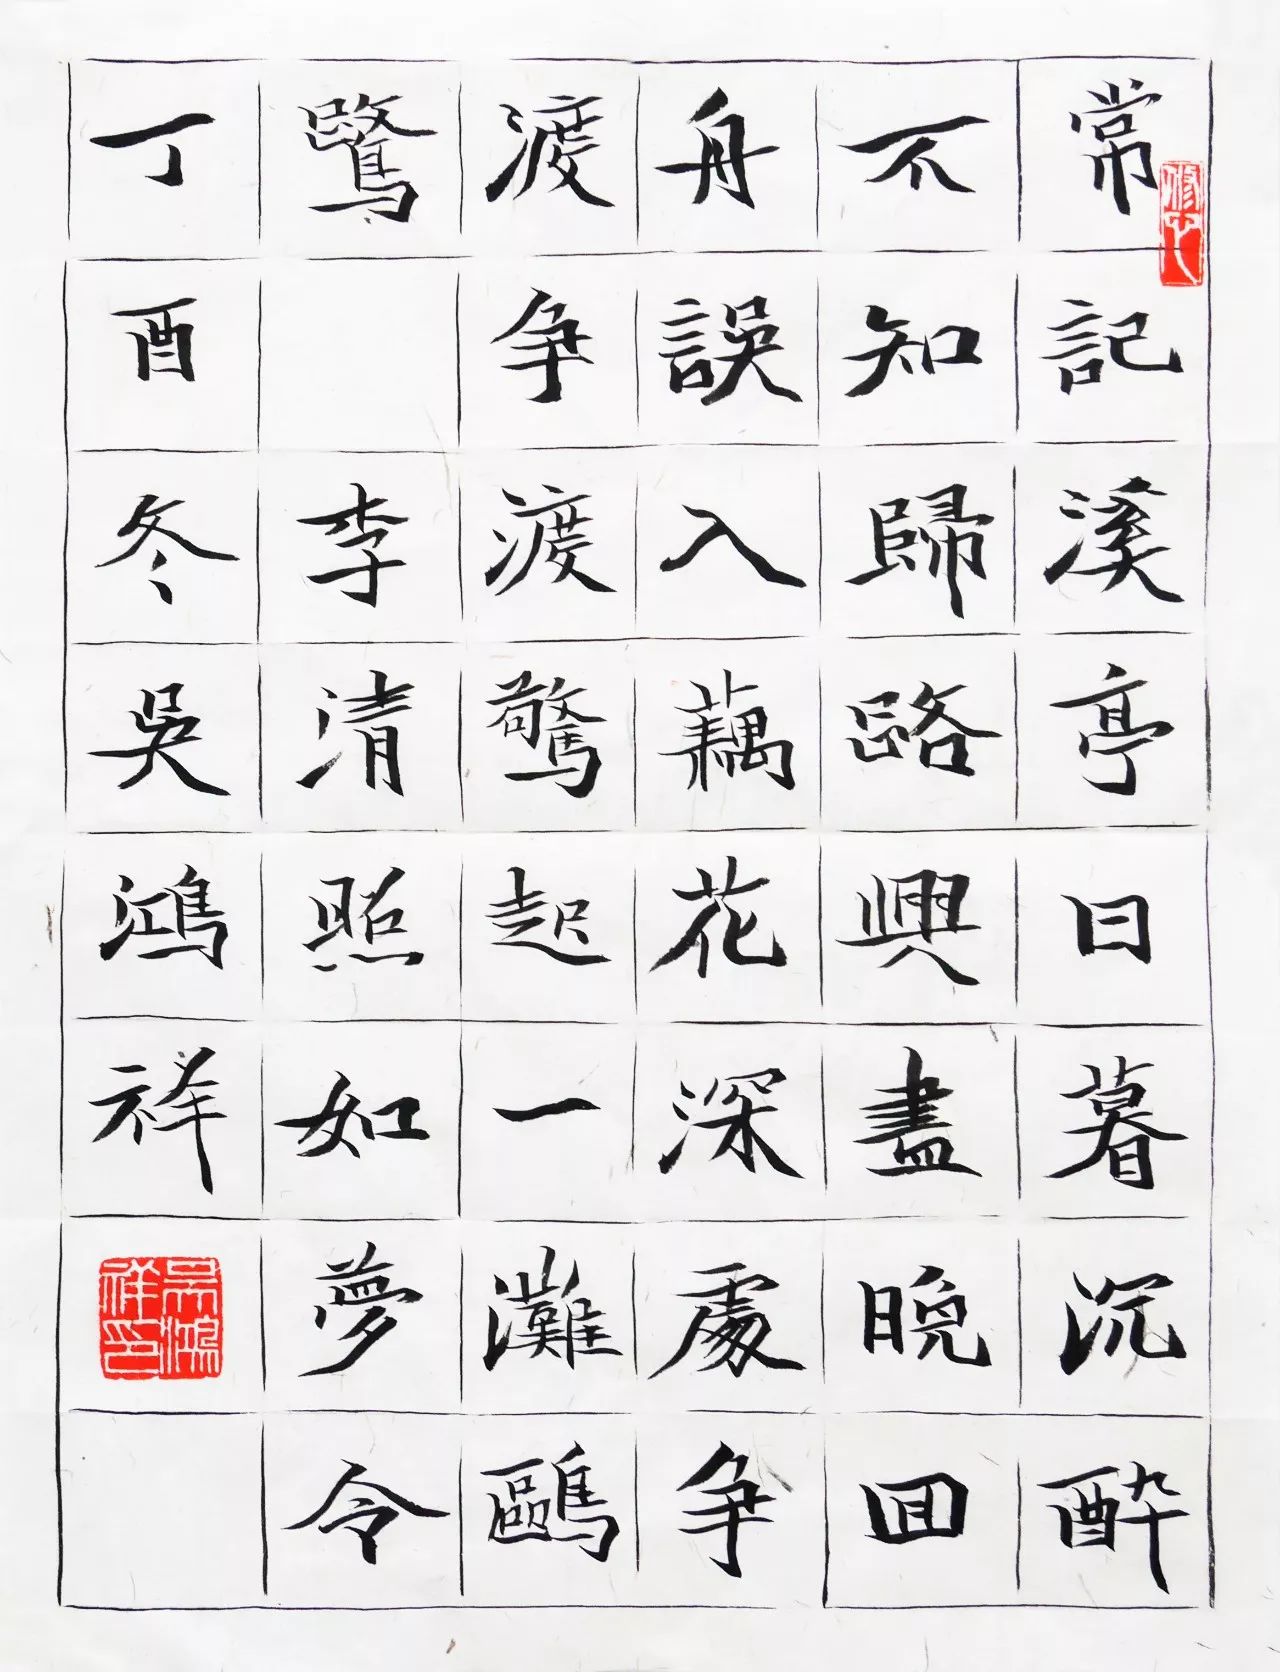 修心
常記溪亭日暮沉醉
不知歸路興盡晚囬
舟誤入藕花深處争
渡争渡驚起一灘鷗
鷺 李清照如夢令
丁酉冬吳鴻祥
吳鴻祥印